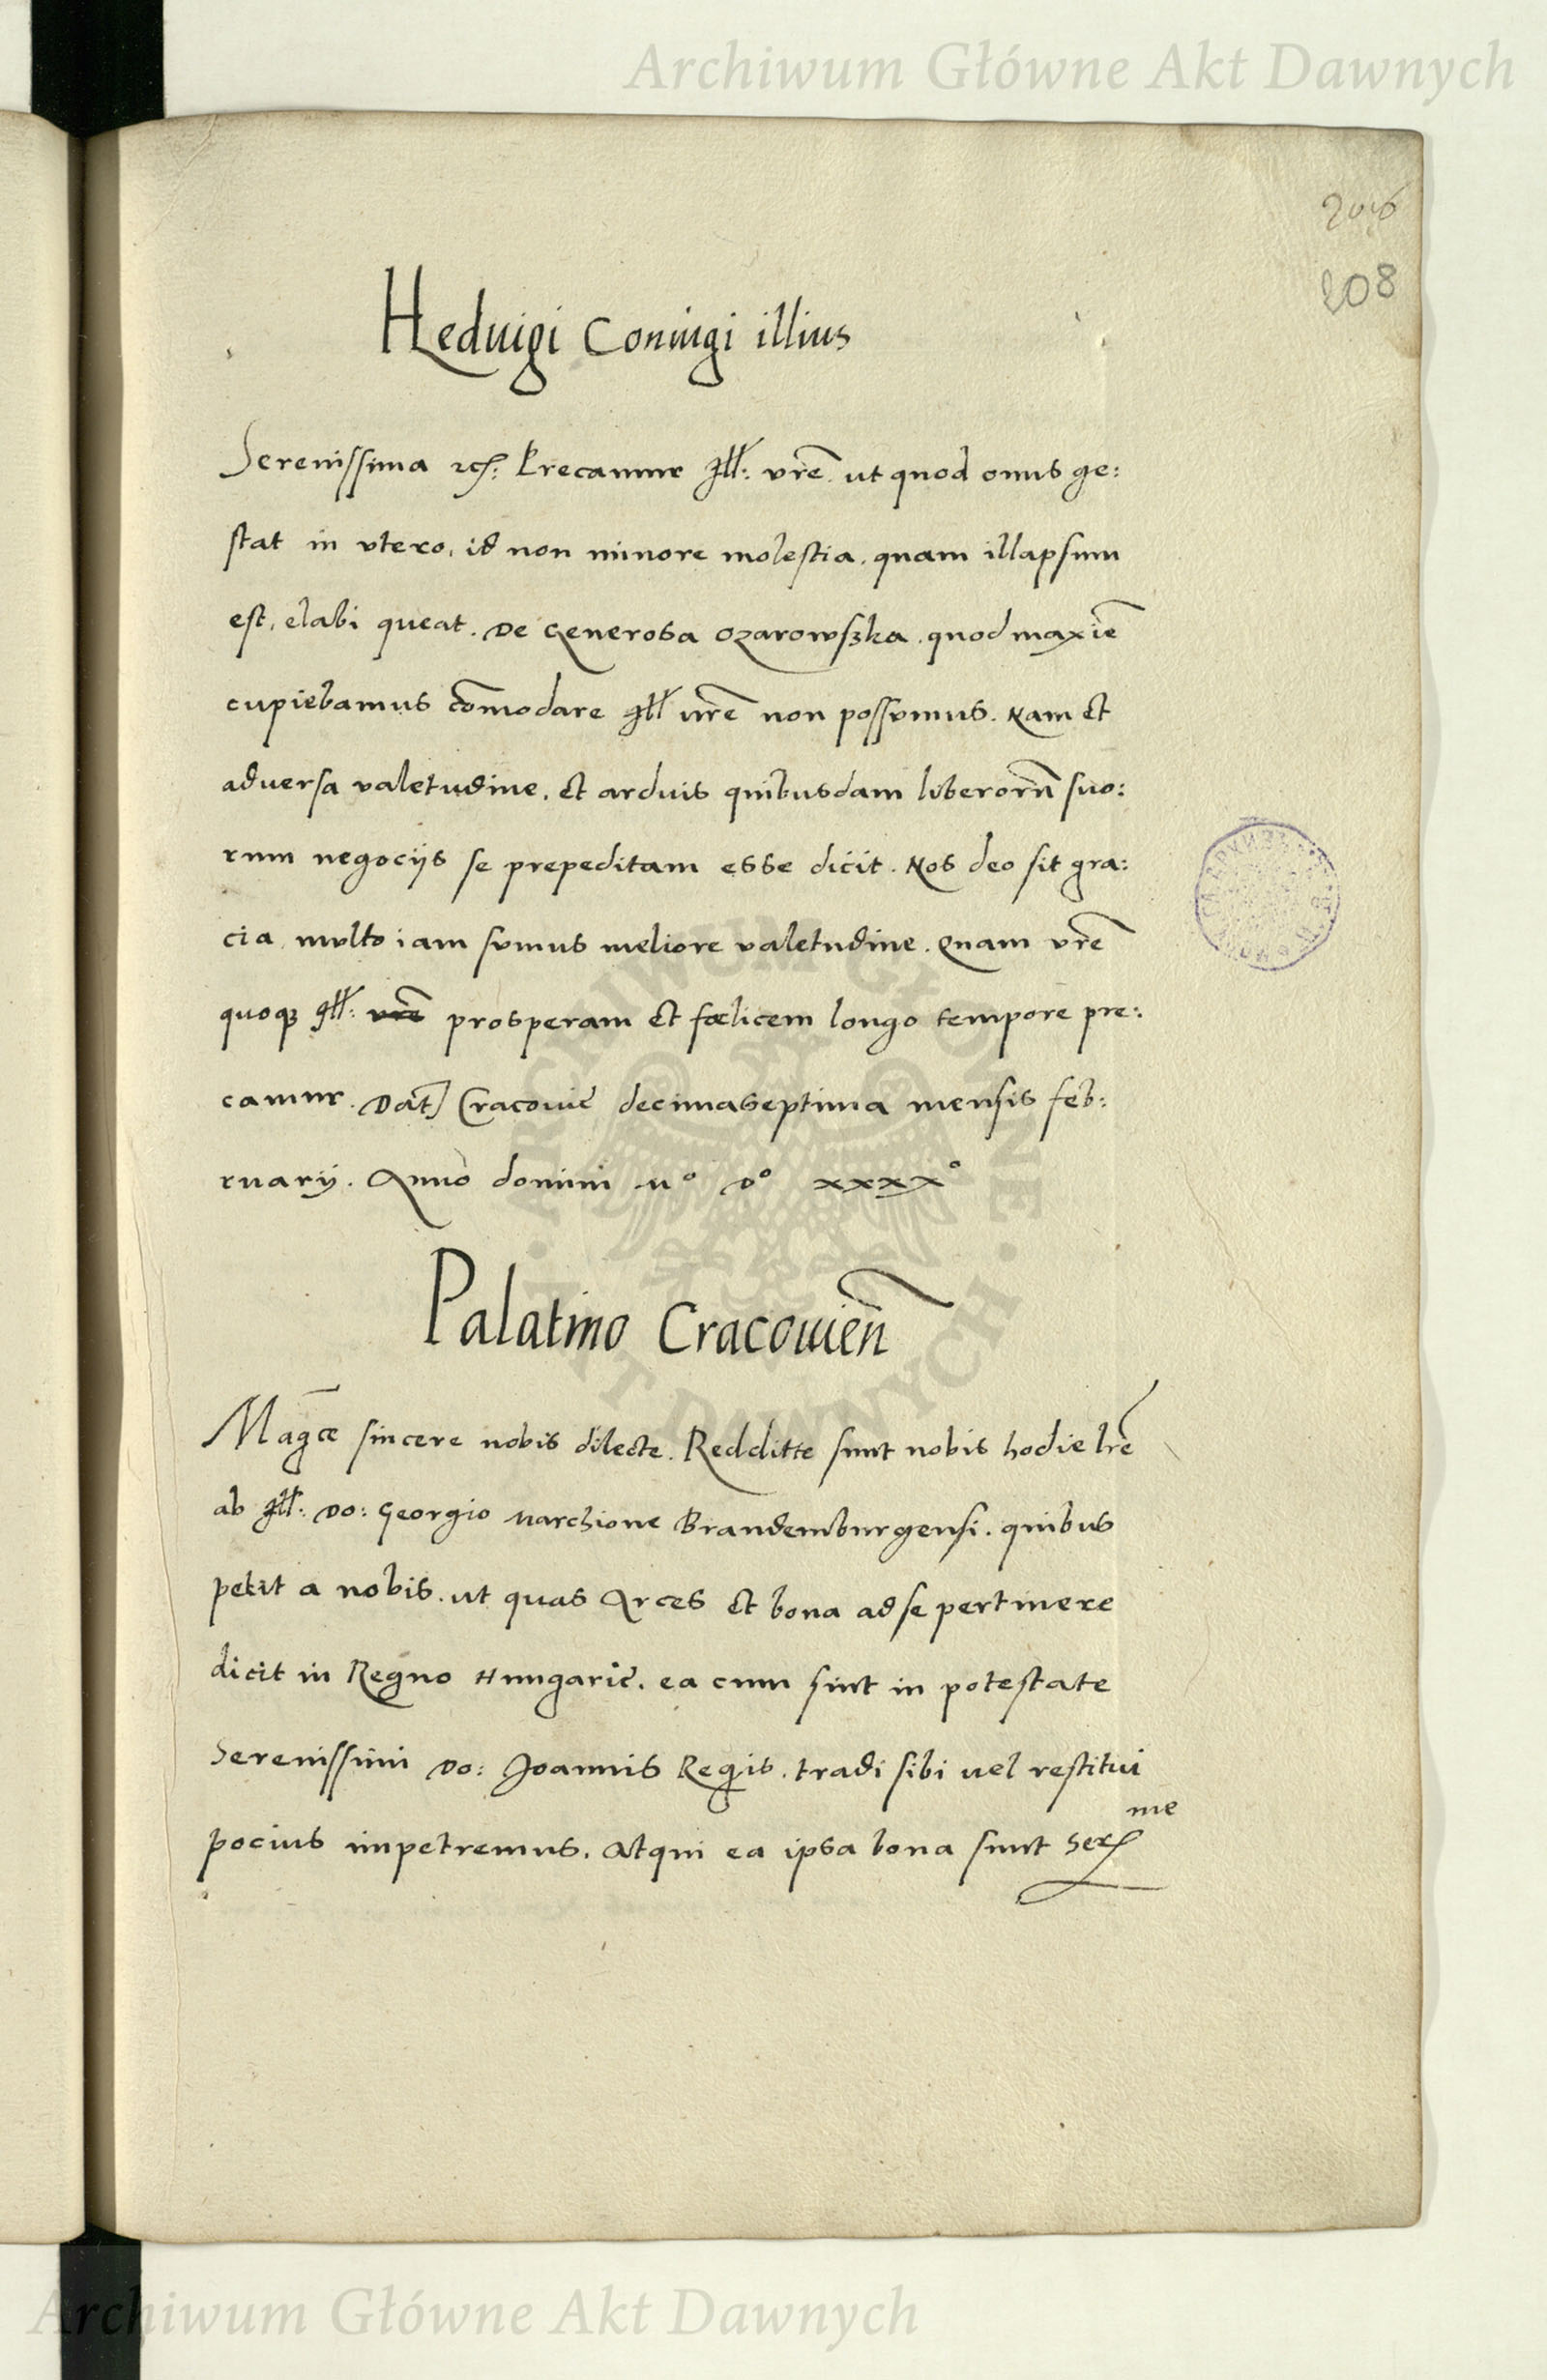 Archiwum Główne Akt Dawnych
206
208
Heduigi Coniugi illius
Serenissima etc: Precamur Ill: vrẽ. ut quod onus ge:
stat in vtero, id non minore molestia, quam illapsum
est, elabi queat. De Generosa Ozarowszka, quod maxiẽ
cupiebamus cõmodare Ill vrẽ non possumus. Nam et
aduersa valetudine, et arduis quibusdam liberorũ suo:
rum negocijs se prepeditam esse dicit. Nos deo sit gra:
cia multo iam sumus meliore valetudine. Quam vrẽ
quoqȝ Ill: vrẽ prosperam et fœlicem longo tempore pre:
camur. Dat Cracouię decimaseptima mensis feb:
ruarij. Anno domini Mº Dº xxxxº
Palatino Cracouieñ
Magcẽ sincere nobis dilecte. Redditte sunt nobis hodie lrẽ
ab Ill: Do: Georgio Marchione Brandemburgensi. quibus
petit a nobis. ut quas Arces et bona ad se pertinere
dicit in Regno Hungarię. ea cum sint in potestate
Serenissimi Do: Joannis Regis. tradi sibi vel restitui
pocius impetremus. Atqui ea ipsa bona sunt Ser me
ARCHIWUM GŁÓWNE AKT DAWNYCH
Archiwum Główne Akt Dawnych